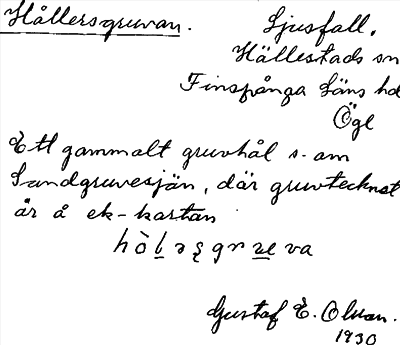 Hållersgruvan.
Ljusfall,
Hällestads sn
Finspånga läns hd
Ögl
Ett gammalt gruvhål s. om
Sandgruvesjön, där gruvtecknet
är å ek-kartan
Gustaf E. Olsson.
1930